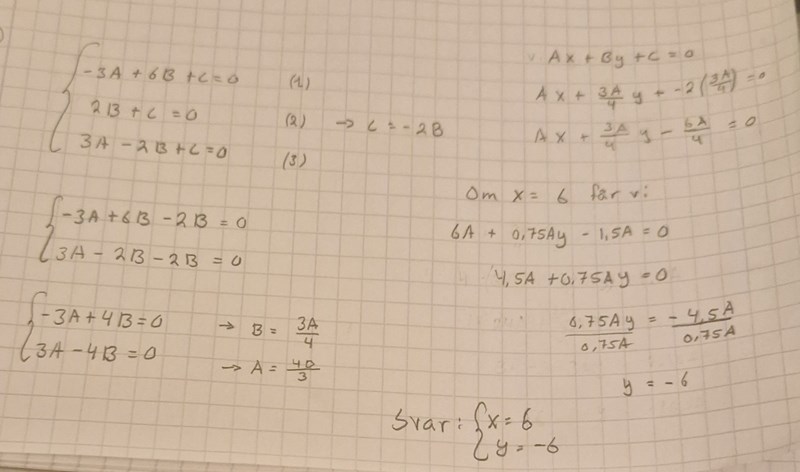 -3A + 6B + C = 0 (1)
2B + C = 0 (2) → C = -2B
3A - 2B + C = 0 (3)
-3A + 6B - 2B = 0
3A - 2B - 2B = 0
-3A + 4B = 0 → B = 3A/4
3A - 4B = 0 → A = 4B/3
Ax + By + C = 0
Ax + 3A/4 y + -2(3A/4) = 0
Ax + 3A/4 y - 6A/4 = 0
Om x = 6 får vi:
6A + 0,75Ay - 1,5A = 0
4,5A + 0,75Ay = 0
0,75Ay/0,75A = -4,5A/0,75A
y = -6
Svar: { x = 6
y = -6